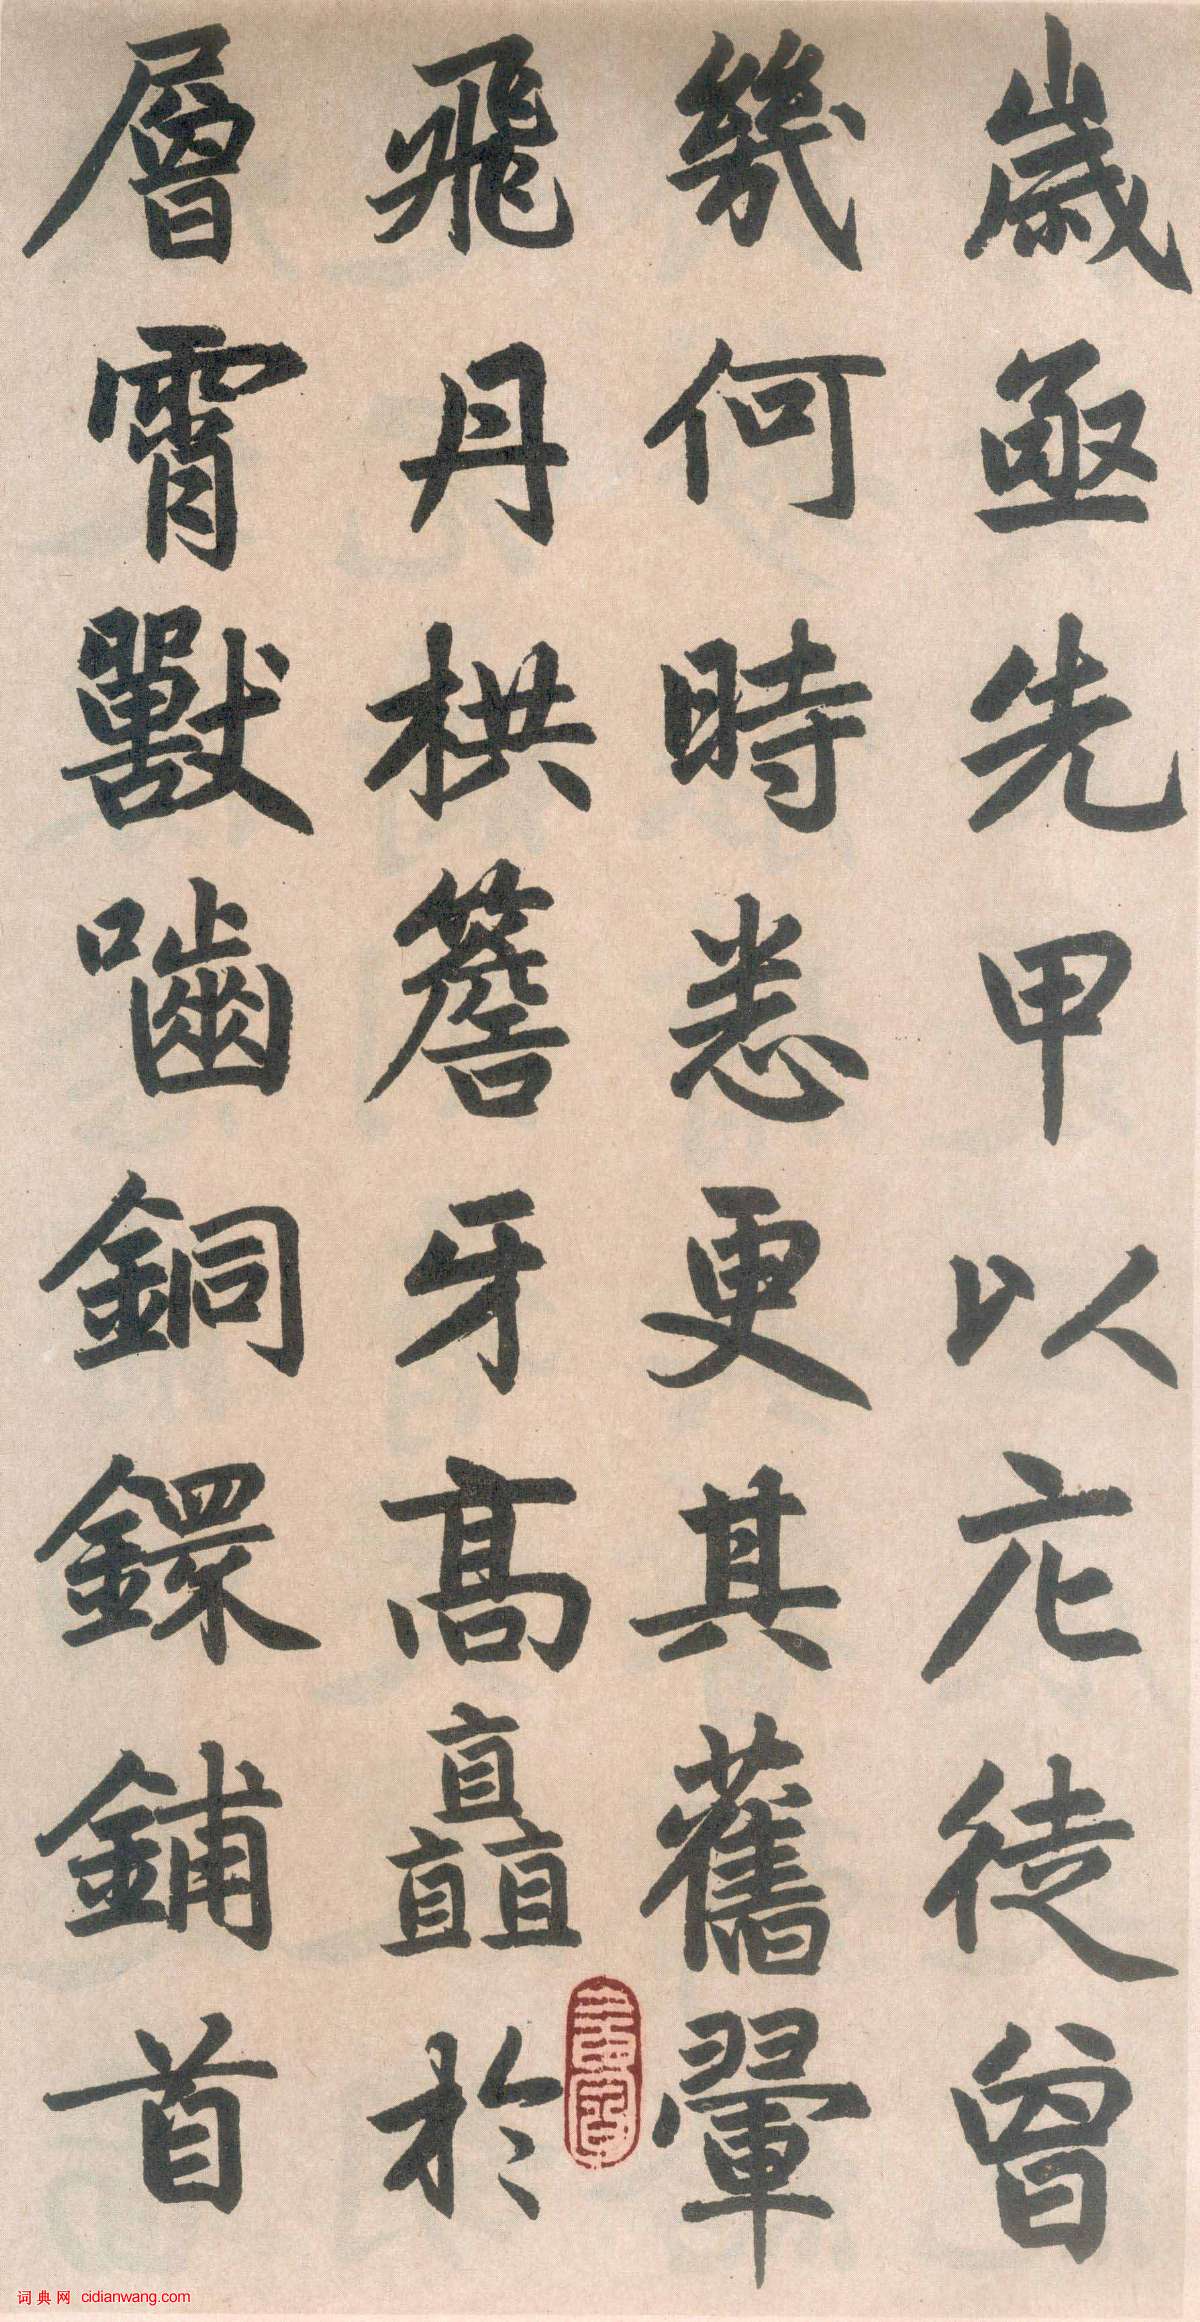 歲亟先甲以庀徒曾
幾何時悉更其舊翬
飛丹栱簷牙高矗於
層霄獸嚙銅鐶鋪首
词典网 cidianwang.com